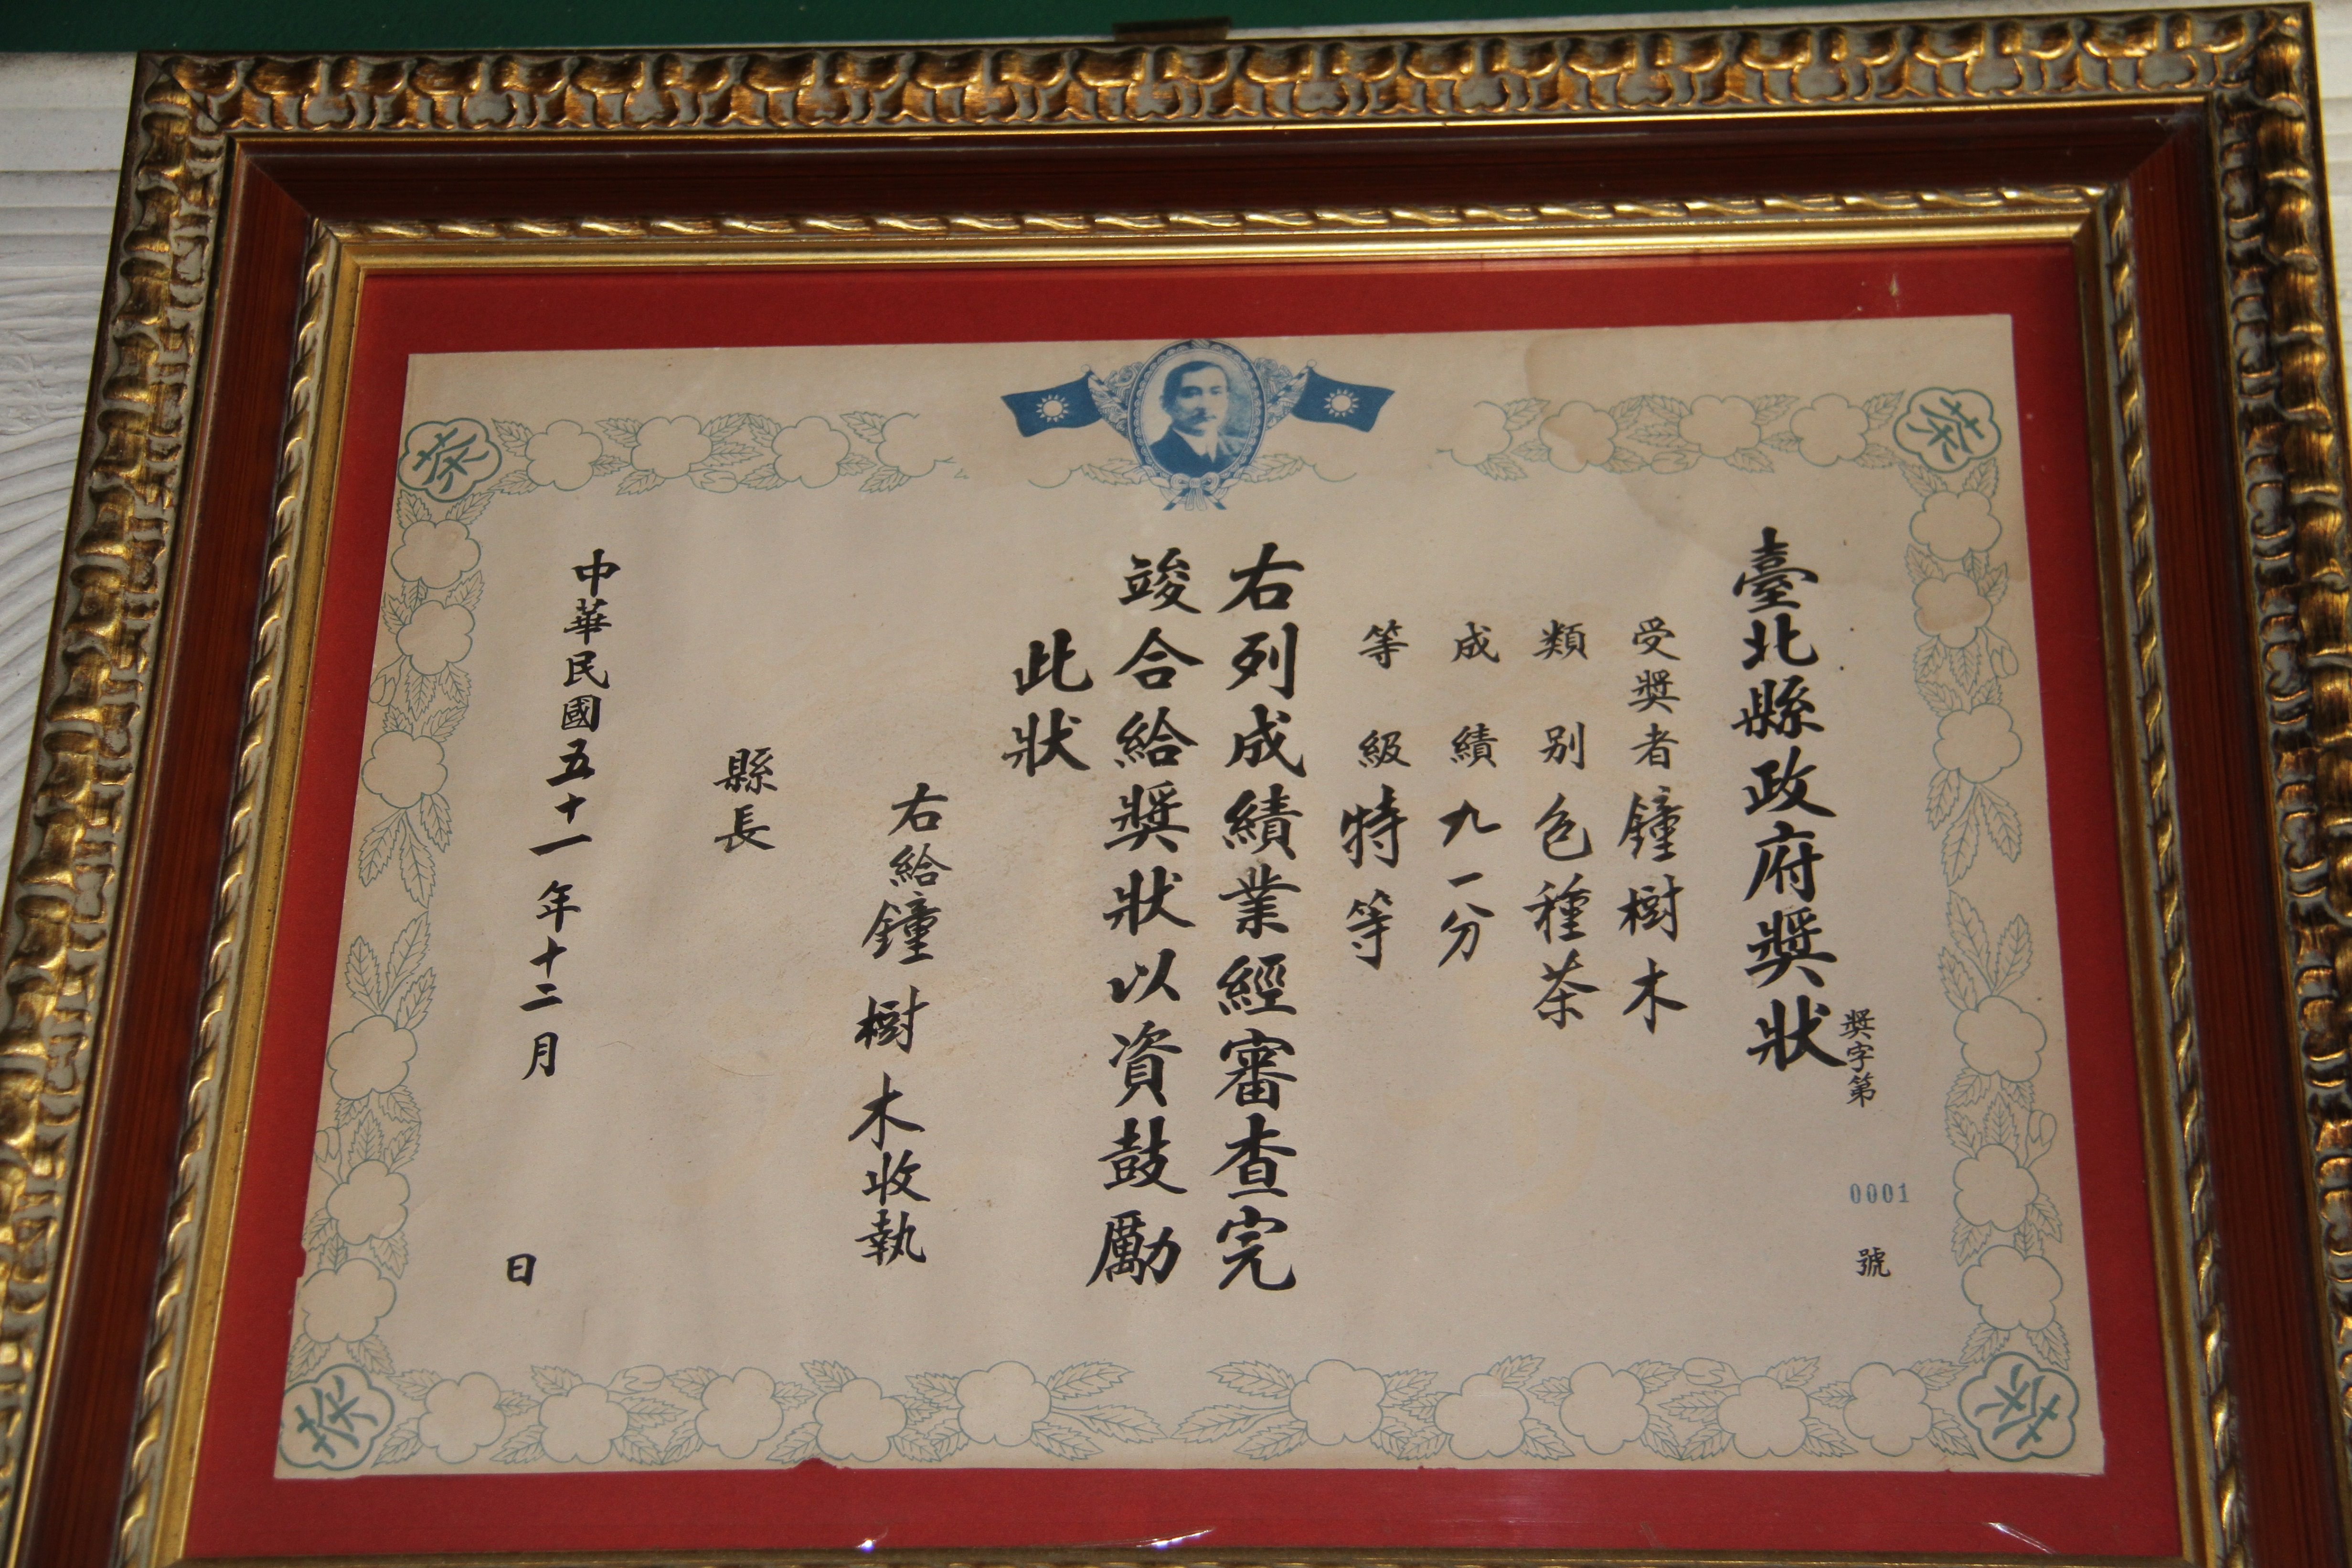 臺北縣政府獎狀
獎字第 0001 號
受獎者鐘樹木
類別色種茶
成績九一分
等級特等
右列成績業經審查完
竣合給獎狀以資鼓勵
此狀
右給鐘樹木收執
縣長
中華民國五十一年十二月 日
茶
茶